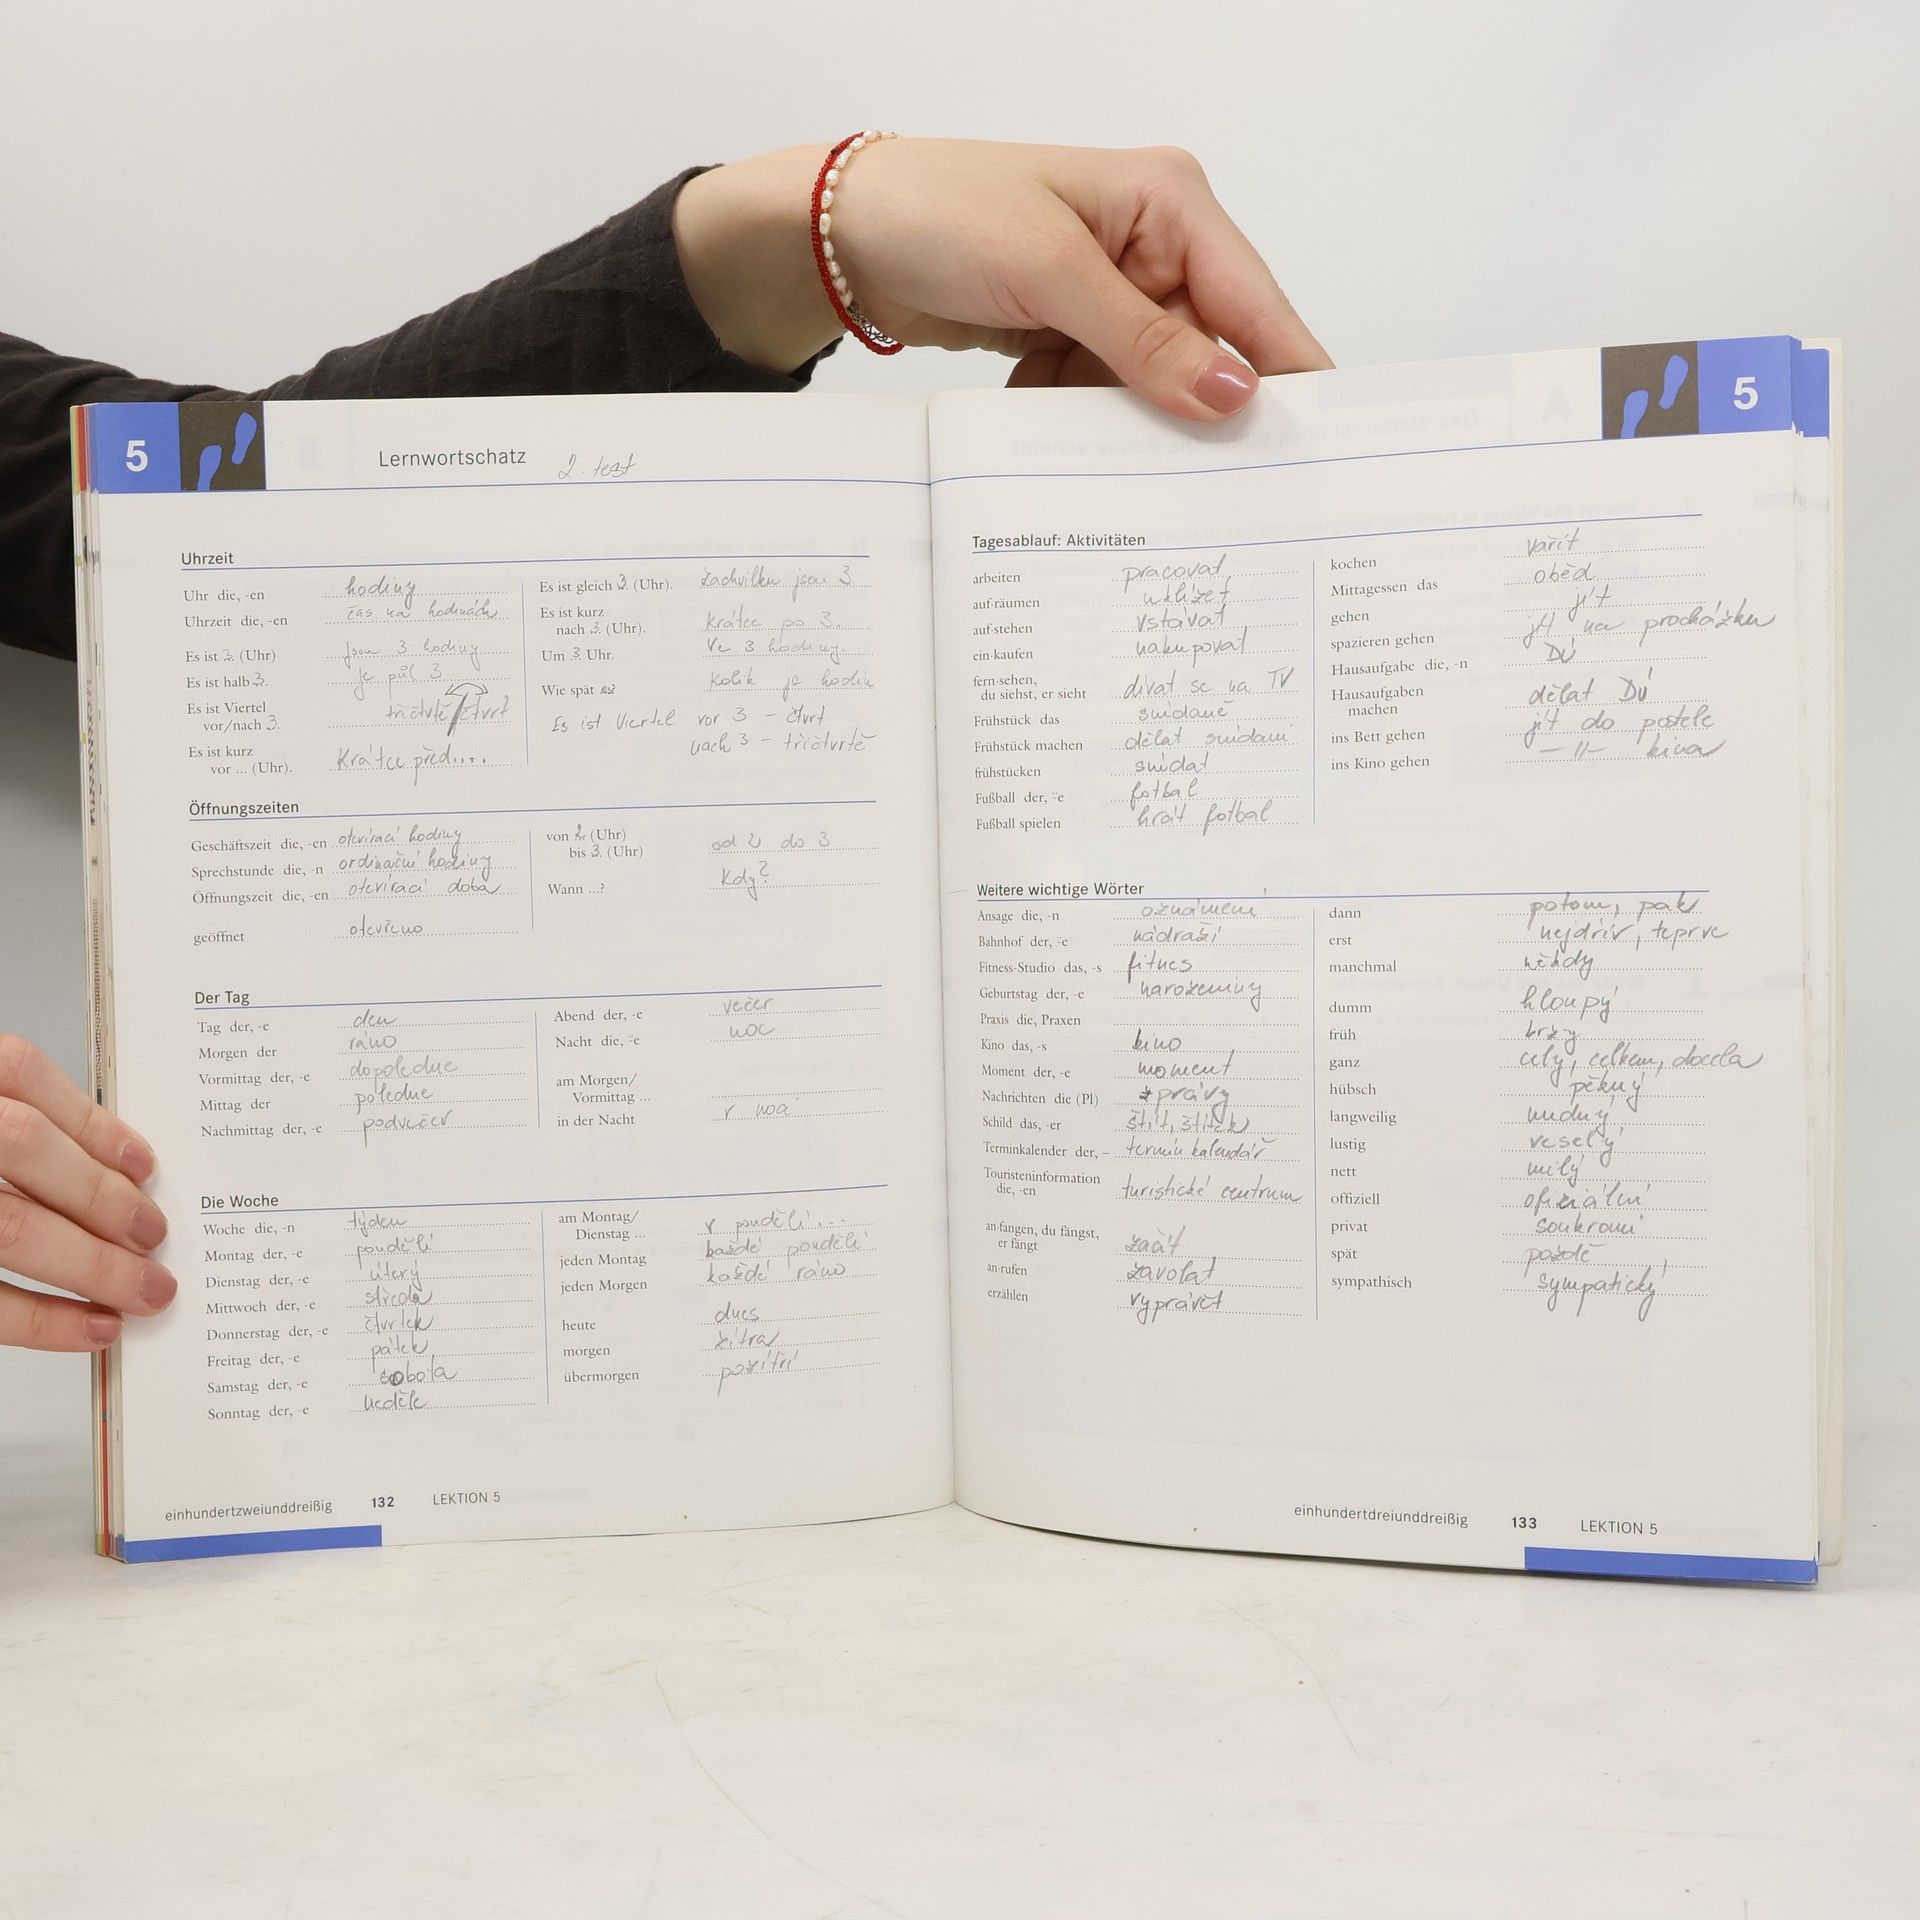 5
Lernwortschatz 2. test
Uhrzeit
Uhr die, -en hodiny
Uhrzeit die, -en čas na hodinách
Es ist 3. (Uhr) jsou 3 hodiny
Es ist halb 3. je půl 3
Es ist Viertel
vor/nach 3. tříčtvrtě čtvrt
Es ist kurz
vor ... (Uhr). Krátce před....
Es ist gleich 3. (Uhr). zachvilku jsou 3
Es ist kurz
nach 3. (Uhr). krátce po 3.
Um 3 Uhr. ve 3 hodiny.
Wie spät kolik je hodin
Es ist Viertel vor 3 - čtvrt
nach 3 - tříčtvrtě
Öffnungszeiten
Geschäftszeit die, -en otevírací hodiny
Sprechstunde die, -n ordinační hodiny
Öffnungszeit die, -en otevírací doba
geöffnet otevřeno
von 2 (Uhr)
bis 3. (Uhr) od 2 do 3
Wann ...? Kdy?
Der Tag
Tag der, -e den
Morgen der ráno
Vormittag der, -e dopoledne
Mittag der poledne
Nachmittag der, -e podvečer
Abend der, -e večer
Nacht die, ¨-e noc
am Morgen/
Vormittag ...
in der Nacht v noci
Die Woche
Woche die, -n týden
Montag der, -e pondělí
Dienstag der, -e úterý
Mittwoch der, -e středa
Donnerstag der, -e čtvrtek
Freitag der, -e pátek
Samstag der, -e sobota
Sonntag der, -e neděle
am Montag/
Dienstag ... v pondělí...
jeden Montag každé pondělí
jeden Morgen každé ráno
heute dnes
morgen zítra
übermorgen pozítří
einhundertzweiunddreißig 132 LEKTION 5
5
Tagesablauf: Aktivitäten
arbeiten pracovat
auf·räumen uklízet
auf·stehen vstávat
ein·kaufen nakupovat
fern·sehen,
du siehst, er sieht dívat se na TV
Frühstück das snídaně
Frühstück machen dělat snídani
frühstücken snídat
Fußball der, ¨-e fotbal
Fußball spielen hrát fotbal
kochen vařit
Mittagessen das oběd
gehen jít
spazieren gehen jít na procházku
Hausaufgabe die, -n DÚ
Hausaufgaben
machen dělat DÚ
ins Bett gehen jít do postele
ins Kino gehen —||— kina
Weitere wichtige Wörter
Ansage die, -n oznámení
Bahnhof der, ¨-e nádraží
Fitness-Studio das, -s fitnes
Geburtstag der, -e narozeniny
Praxis die, Praxen
Kino das, -s kino
Moment der, -e moment
Nachrichten die (Pl) zprávy
Schild das, -er štít, štítek
Terminkalender der, – termín kalendář
Touristeninformation
die, -en turistické centrum
an·fangen, du fängst,
er fängt začít
an·rufen zavolat
erzählen vyprávět
dann potom, pak
erst nejdrív, teprve
manchmal někdy
dumm hloupý
früh brzy
ganz celý, celkem, docela
hübsch pěkný
langweilig nudný
lustig veselý
nett milý
offiziell oficiální
privat soukromí
spät pozdě
sympathisch sympatický
einhundertdreiunddreißig 133 LEKTION 5